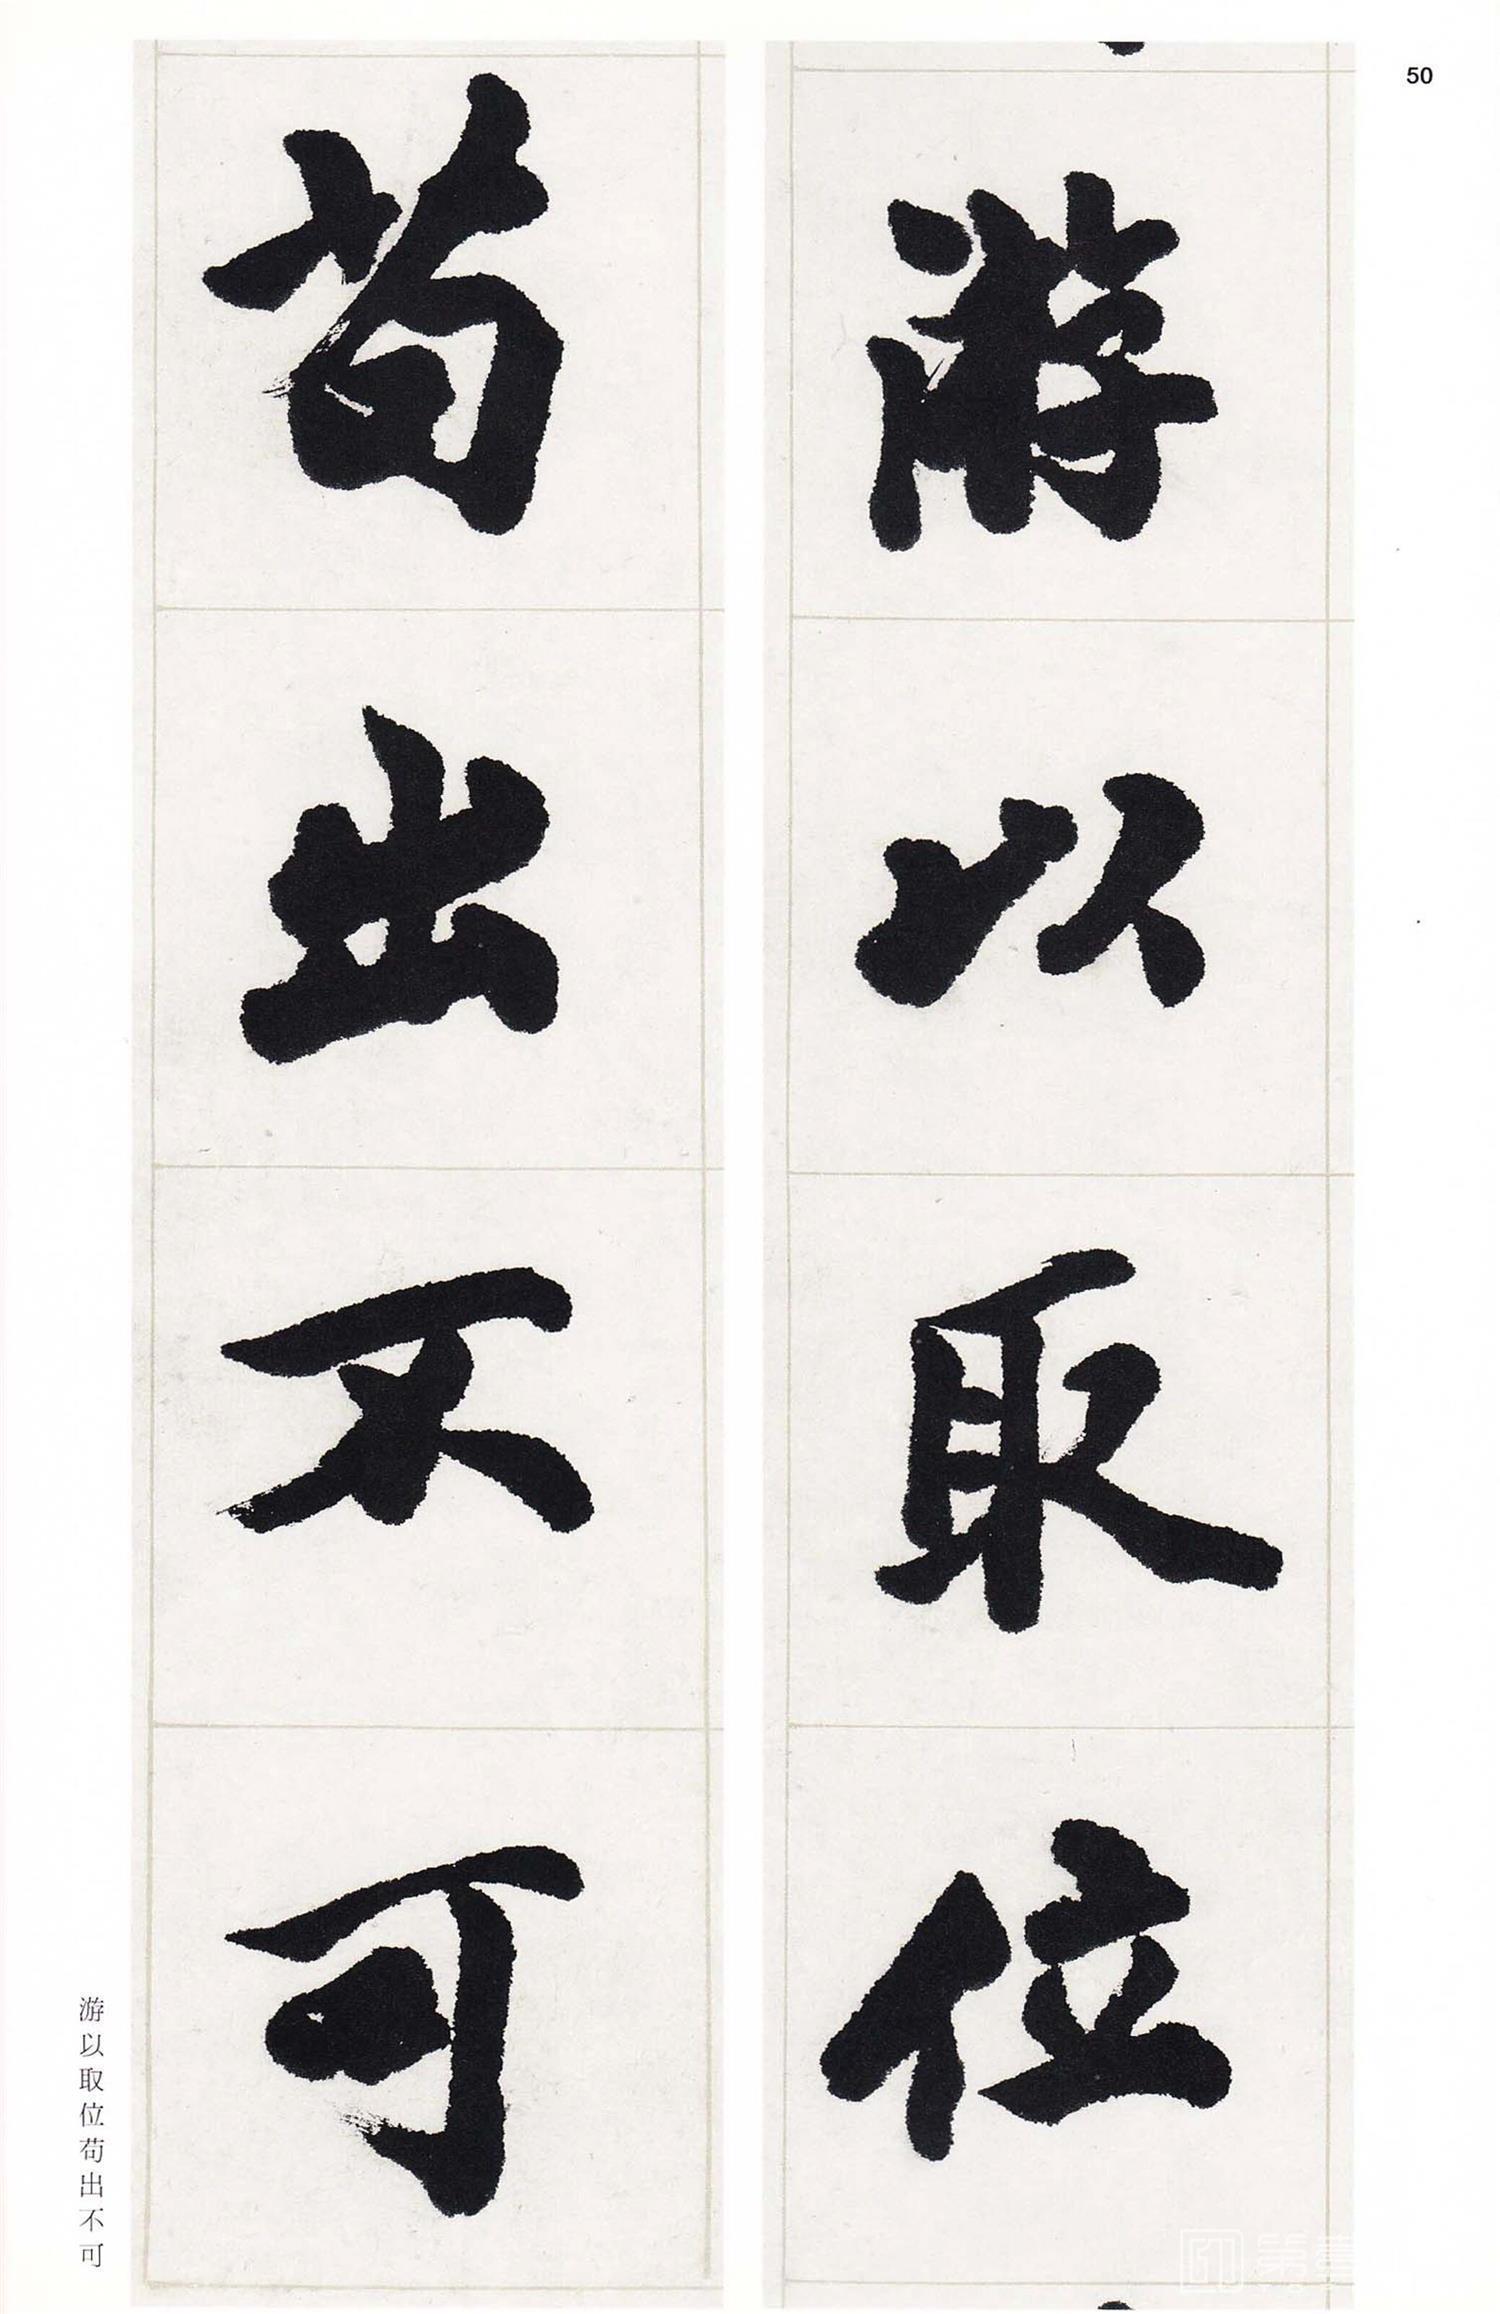 50
游以取位
苟出不可
游以取位苟出不可